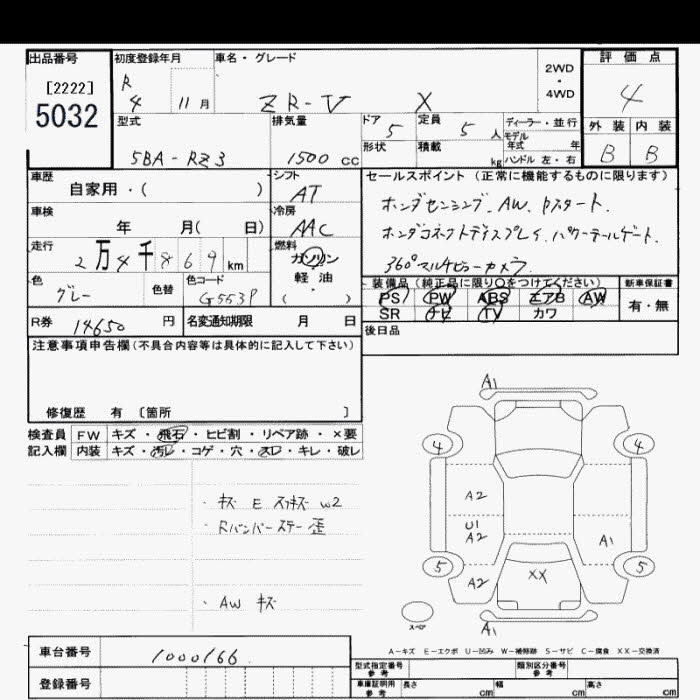 出品番号
[2222]
5032
初度登録年月
R
4 11月
車名・グレード
ZR-V X
2WD
・
4WD
評価点
4
外装 内装
B B
型式
5BA-RZ3
排気量
1500 cc
ドア 5
定員 5 人
ディーラー・並行
モデル
年式 年
形状
積載 kg
ハンドル 左・右
車歴
自家用・( )
シフト
AT
車検
年 月( 日)
冷房
AAC
走行
2万4千869km
燃料
ガソリン
・
軽油
( )
色
グレー
色替
色コード
G553P
R券 14650 円
名変通知期限 月 日
セールスポイント (正常に機能するものに限ります)
ホンダセンシング、AW、Pスタート、
ホンダコネクトディスプレイ、パワーテールゲート、
360°マルチビューカメラ
装備品(純正品に限り○をつけてください)
PS PW ABS エアB AW
SR ナビ TV カワ
新車保証書
有・無
後日品
注意事項申告欄(不具合内容等は具体的に記入して下さい)
修復歴 有 〔箇所 〕
検査員 FW キズ・飛石・ヒビ割・リペア跡・×要
記入欄 内装 キズ・汚レ・コゲ・穴・スレ・キレ・破レ
・キズ E スリキズ W2
・Rバンパーステー歪
・AW キズ
A1
4 4
A2
U1
A2
A1
5 5
A2
XX
スペア
A1
A-キズ E-エクボ U-凹み W-補修跡 S-サビ C-腐食 XX-交換済
車台番号 1000166
登録番号
型式指定番号
参考
類別区分番号
参考
車庫証明用
参考
長さ cm 幅 cm 高さ cm